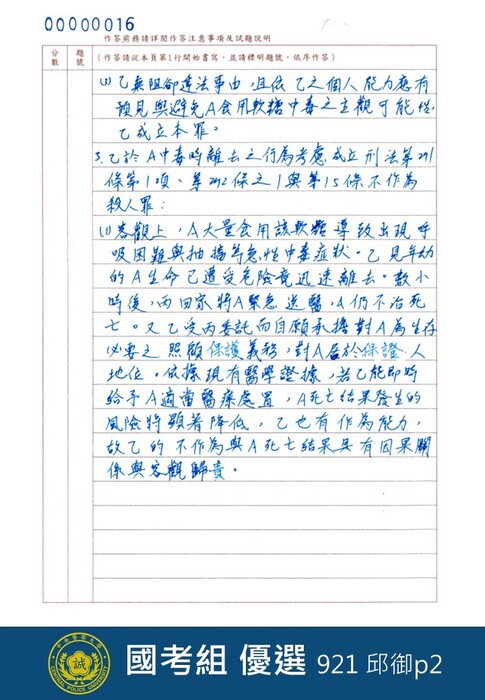 00000016
作答前務請詳閱作答注意事項及試題說明
分數
題號
(作答請從本頁第1行開始書寫,並請標明題號,依序作答)
(3)乙無阻卻違法事由,且依乙之個人能力應有
預見與避免A食用軟糖中毒之主觀可能性,
乙成立本罪。
3.乙於A中毒時離去之行為考慮成立刑法第271
條第1項、第292條之1與第15條不作為
殺人罪:
(1)客觀上,A大量食用該軟糖導致出現呼
吸困難與抽搐等急性中毒症狀。乙見年幼
的A生命已遭受危險竟迅速離去。數小
時後,丙回家將A緊急送醫,A仍不治死
亡。又乙受丙委託而自願承擔對A為生存
必要之照顧保護義務,對A居於保證人
地位。依據現有醫學證據,若乙能即時
給予A適當醫療處置,A死亡結果發生的
風險將顯著降低,乙也有作為能力,
故乙的不作為與A死亡結果具有因果關
係與客觀歸責。
誠
CENTRAL POLICE UNIVERSITY
國考組 優選 921 邱御p2